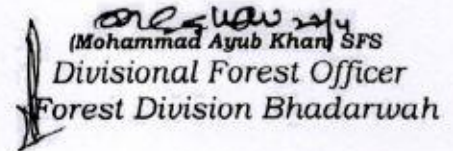 (Mohammad Ayub Khan) SFS
Divisional Forest Officer
Forest Division Bhadarwah